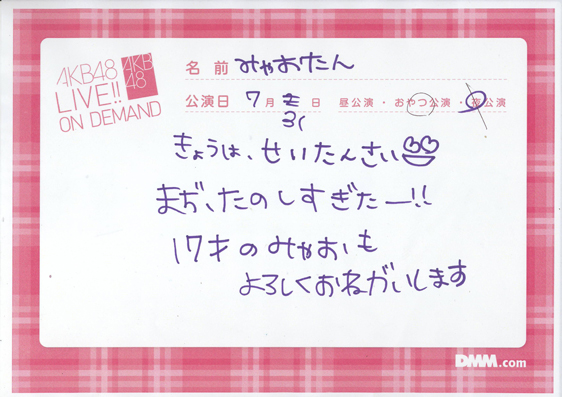 AKB48
LIVE!!
ON DEMAND
AKB
48
名前 みゃおたん
公演日 7月 日 昼公演・おやつ公演・夜公演
31
きょうは、せいたんさい
まぢ、たのしすぎたー!!
17才のみゃおも
よろしくおねがいします
DMM.com